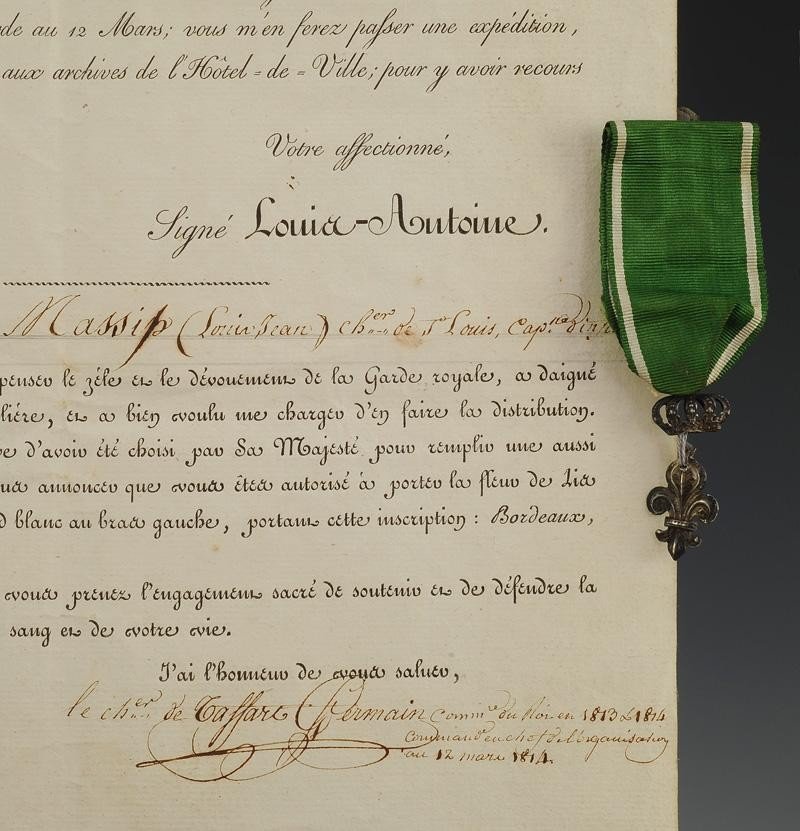 de au 12 Mars; vous m'en ferez passer une expédition,
aux archives de l'Hôtel=de=Ville; pour y avoir recours
Votre affectionné,
Signé Louis-Antoine.
Massip (Louis Jean) cher de St Louis, Capne d'in
penser le zéle et le dévouement de la Garde royale, a daigné
liére, et a bien voulu me charger d'en faire la distribution.
ve d'avoir été choisi par Sa Majesté pour remplir une aussi
us annoncer que vous êtes autorisé à porter la fleur de Lis
d blanc au bras gauche, portant cette inscription : Bordeaux,
vous prenez l'engagement sacré de soutenir et de défendre la
sang et de votre vie.
J'ai l'honneur de vous saluer,
le cher de Taffart St Germain commre du Roi en 1813 & 1814
command en chef de l'organisation
au 12 mars 1814.